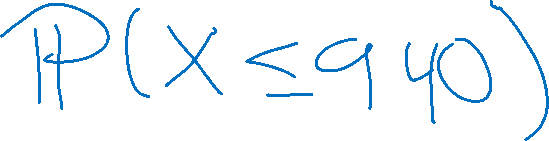 ℙ(X ≤ 940)